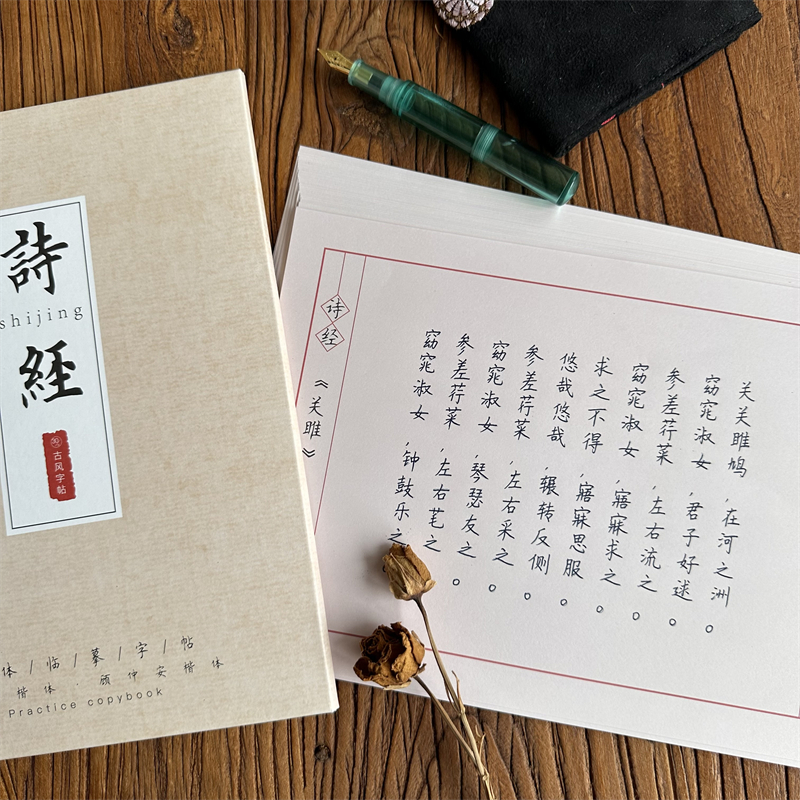 詩
shijing
經
古风字帖
体/临/摹/字/帖
楷体·顾仲安楷体
Practice copybook
诗经
《关雎》
关关雎鸠,在河之洲。
窈窕淑女,君子好逑。
参差荇菜,左右流之。
窈窕淑女,寤寐求之。
求之不得,寤寐思服。
悠哉悠哉,辗转反侧。
参差荇菜,左右采之。
窈窕淑女,琴瑟友之。
参差荇菜,左右芼之
窈窕淑女,钟鼓乐之